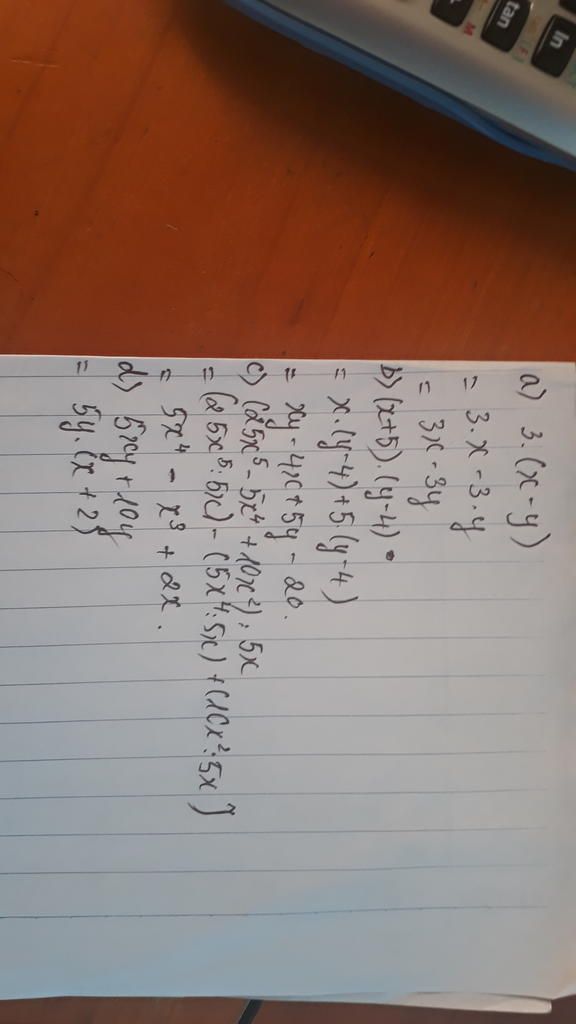 tan
ln
M
a) 3.(x-y)
= 3.x-3.y
= 3x-3y
b) (x+5).(y-4).
= x.(y-4)+5(y-4)
= xy-4x+5y-20.
c) (25x⁵-5x⁴+10x²):5x
= (25x⁵:5x)-(5x⁴:5x)+(10x²:5x)
= 5x⁴-x³+2x.
d) 5xy+10y
= 5y.(x+2)